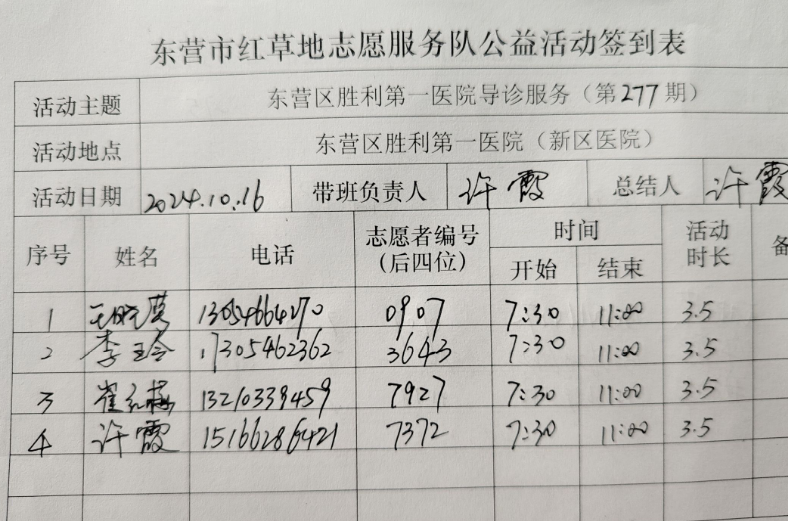 东营市红草地志愿服务队公益活动签到表
活动主题 东营区胜利第一医院导诊服务（第277期）
活动地点 东营区胜利第一医院（新区医院）
活动日期 2024.10.16 带班负责人 许霞 总结人 许霞
序号 姓名 电话 志愿者编号（后四位） 时间 开始 结束 活动时长 备
1 王晓英 13054664270 0907 7:30 11:00 3.5
2 李玲 17305462362 3643 7:30 11:00 3.5
3 崔红梅 13210339459 7927 7:30 11:00 3.5
4 许霞 15166286421 7372 7:30 11:00 3.5